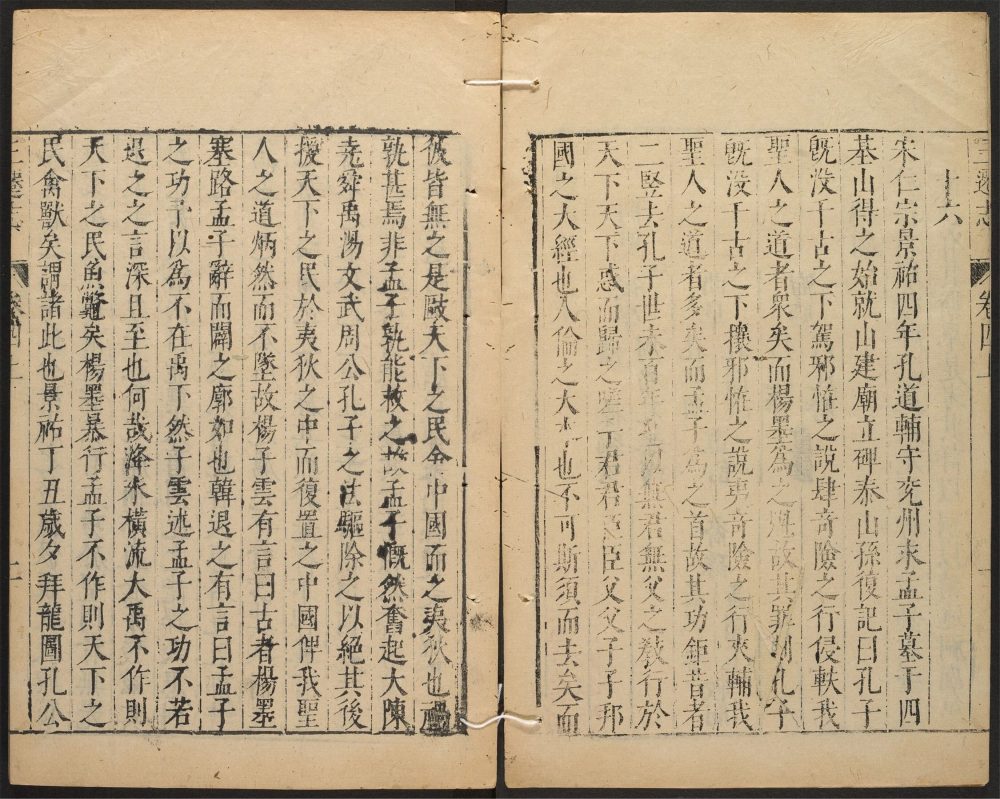 三遷志 卷四上
十六
宋仁宗景祐四年孔道輔守兖州求孟子墓于四
基山得之始就山建廟立碑泰山孫復記曰孔子
旣没千古之下駕邪恠之說肆奇險之行侵軼我
聖人之道者衆矣而楊墨為之魁故其罪劇孔子
旣没千古之下攘邪恠之說夷奇險之行夾輔我
聖人之道者多矣而孟子為之首故其功鉅昔者
二竪去孔子世未百年以無君無父之教行於
天下天下惑而歸之嗟乎君君臣臣父父子子邦
國之大經也人倫之大本也不可斯須而去矣而
彼皆無之是敺天下之民舍中國而之夷狄也禍
孰甚焉非孟子孰能救之故孟子慨然奮起大陳
堯舜禹湯文武周公孔子之法驅除之以絕其後
援天下之民於夷狄之中而復置之中國俾我聖
人之道炳然而不墜故楊子雲有言曰古者楊墨
塞路孟子辭而闢之廓如也韓退之有言曰孟子
之功予以為不在禹下然子雲述孟子之功不若
退之之言深且至也何哉洚水橫流大禹不作則
天下之民魚鼈矣楊墨暴行孟子不作則天下之
民禽獸矣謂諸此也景祐丁丑歲夕拜龍圖孔公